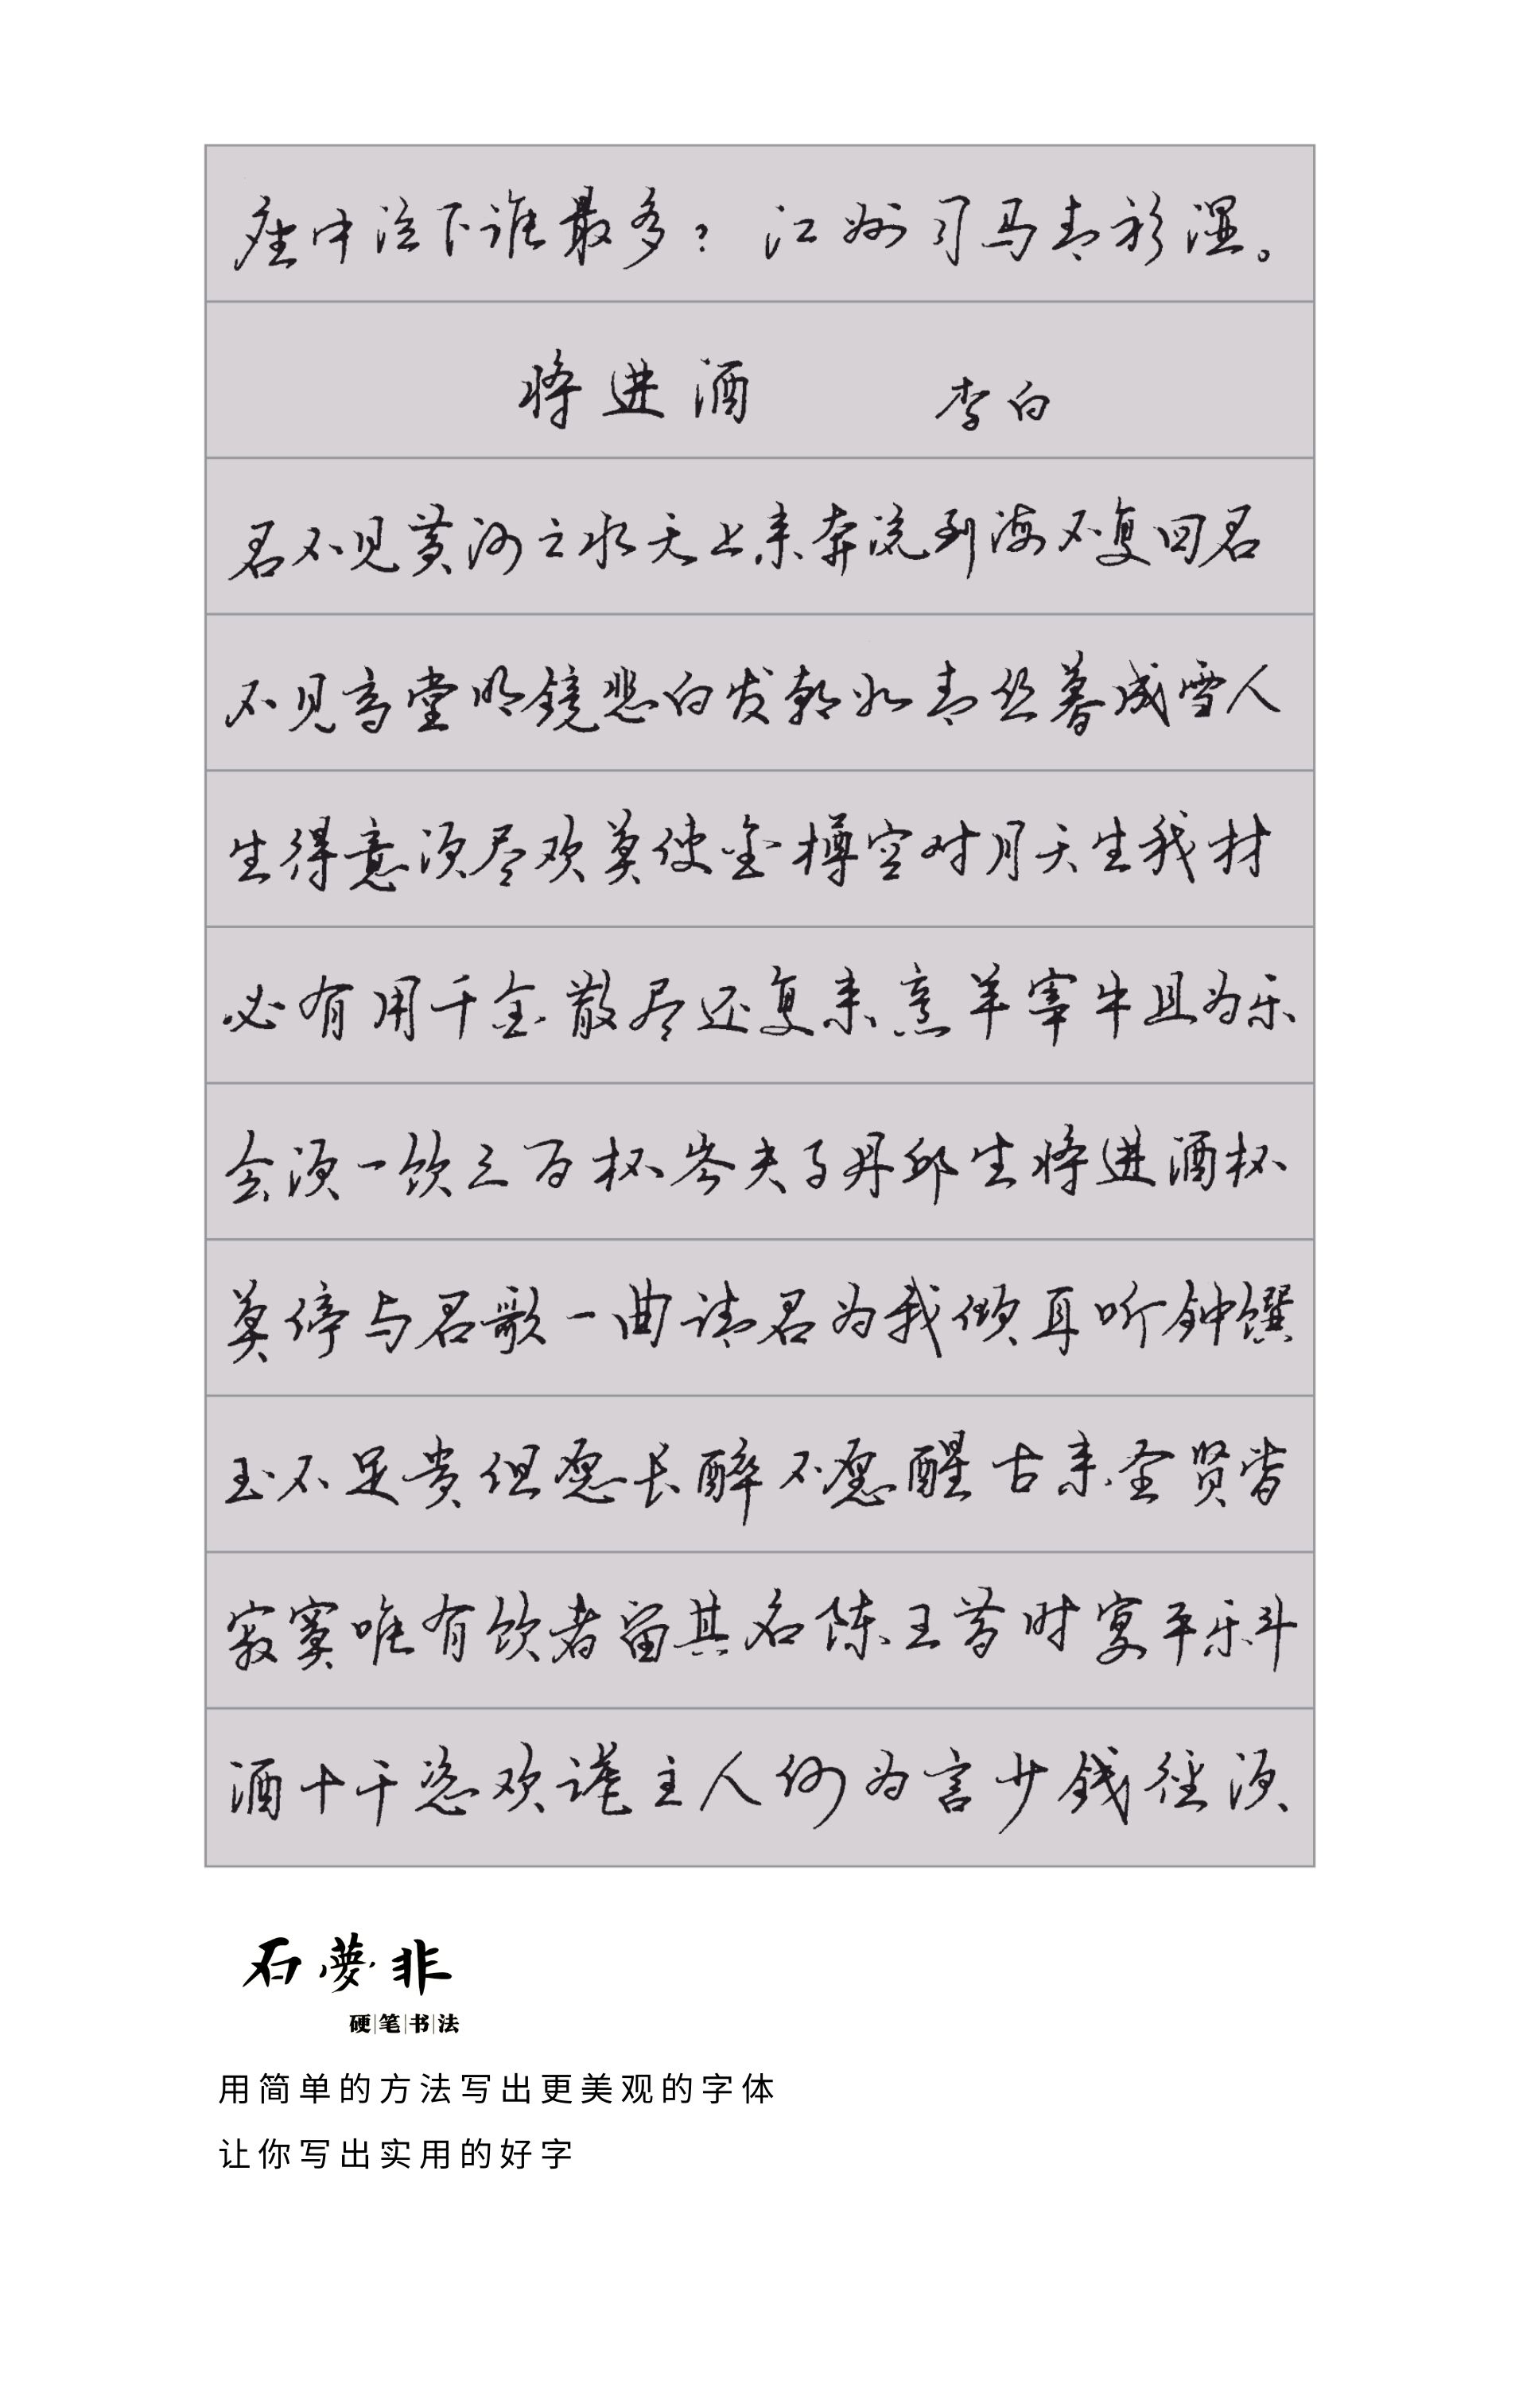 座中泣下谁最多？江州司马青衫湿。
将进酒 李白
君不见黄河之水天上来奔流到海不复回君
不见高堂明镜悲白发朝如青丝暮成雪人
生得意须尽欢莫使金樽空对月天生我材
必有用千金散尽还复来烹羊宰牛且为乐
会须一饮三百杯岑夫子丹邱生将进酒杯
莫停与君歌一曲请君为我倾耳听钟馔
玉不足贵但愿长醉不愿醒古来圣贤皆
寂寞唯有饮者留其名陈王昔时宴平乐斗
酒十千恣欢谑主人何为言少钱径须
石梦非
硬笔书法
用简单的方法写出更美观的字体
让你写出实用的好字